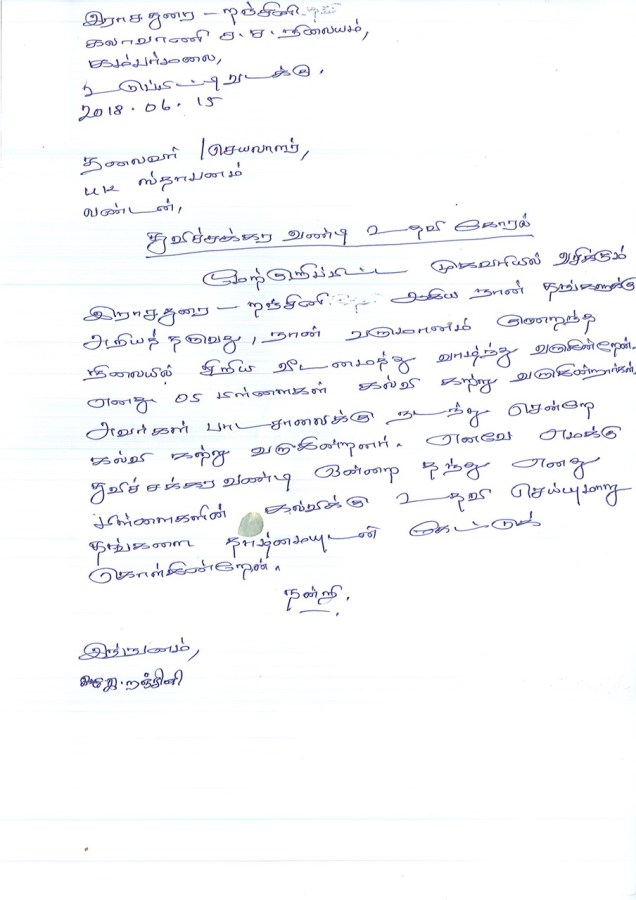 இராசதுரை - றஞ்சினி
கலாவாணி ச.ச.நிலையம்,
கம்பர்மலை,
உடுப்பிட்டி வடக்கு.
2018.06.15
தலைவர் / செயலாளர்,
UK ஸ்தாபனம்
லண்டன்,
துவிச்சக்கர வண்டி உதவி கோரல்
மேற்குறிப்பிட்ட முகவரியில் வசிக்கும்
இராசதுரை - றஞ்சினி ஆகிய நான் தங்களுக்கு
அறியத் தருவது, நான் வருமானம் குறைந்த
நிலையில் சிறிய வீடமைத்து வாழ்ந்து வருகின்றேன்.
எனது 05 பிள்ளைகள் கல்வி கற்று வருகின்றார்கள்.
அவர்கள் பாடசாலைக்கு நடந்து சென்றே
கல்வி கற்று வருகின்றனர். எனவே எமக்கு
துவிச்சக்கர வண்டி ஒன்றை தந்து எனது
பிள்ளைகளின் கல்விக்கு உதவி செய்யுமாறு
தங்களை தாழ்மையுடன் கேட்டுக்
கொள்கின்றேன்.
நன்றி.
இங்ஙனம்,
இ.றஞ்சினி